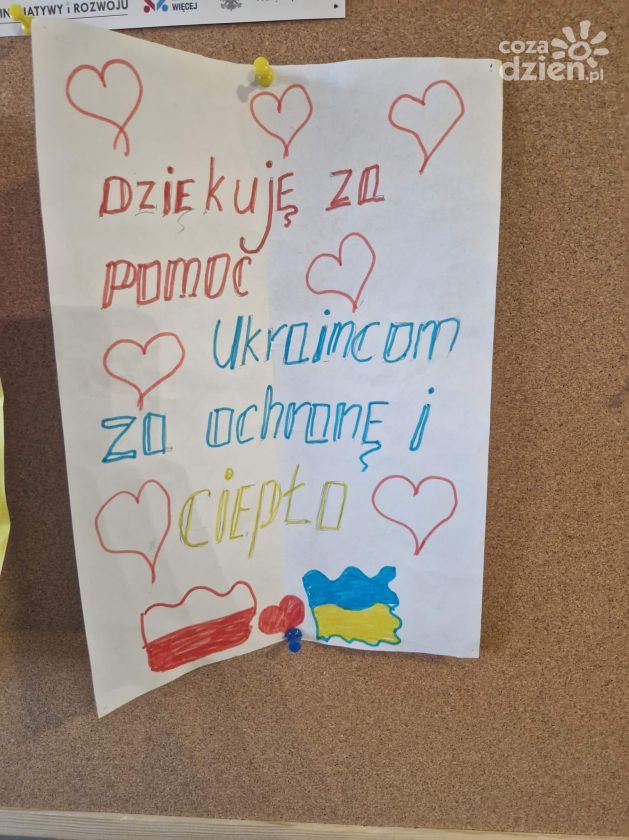 INICJATYWY i ROZWOJU
WIĘCEJ
coza
dzień.pl
DZIĘKUJĘ ZA
POMOĆ
UkRAiNCOM
ZA OCHRONĘ i
CIEPŁO